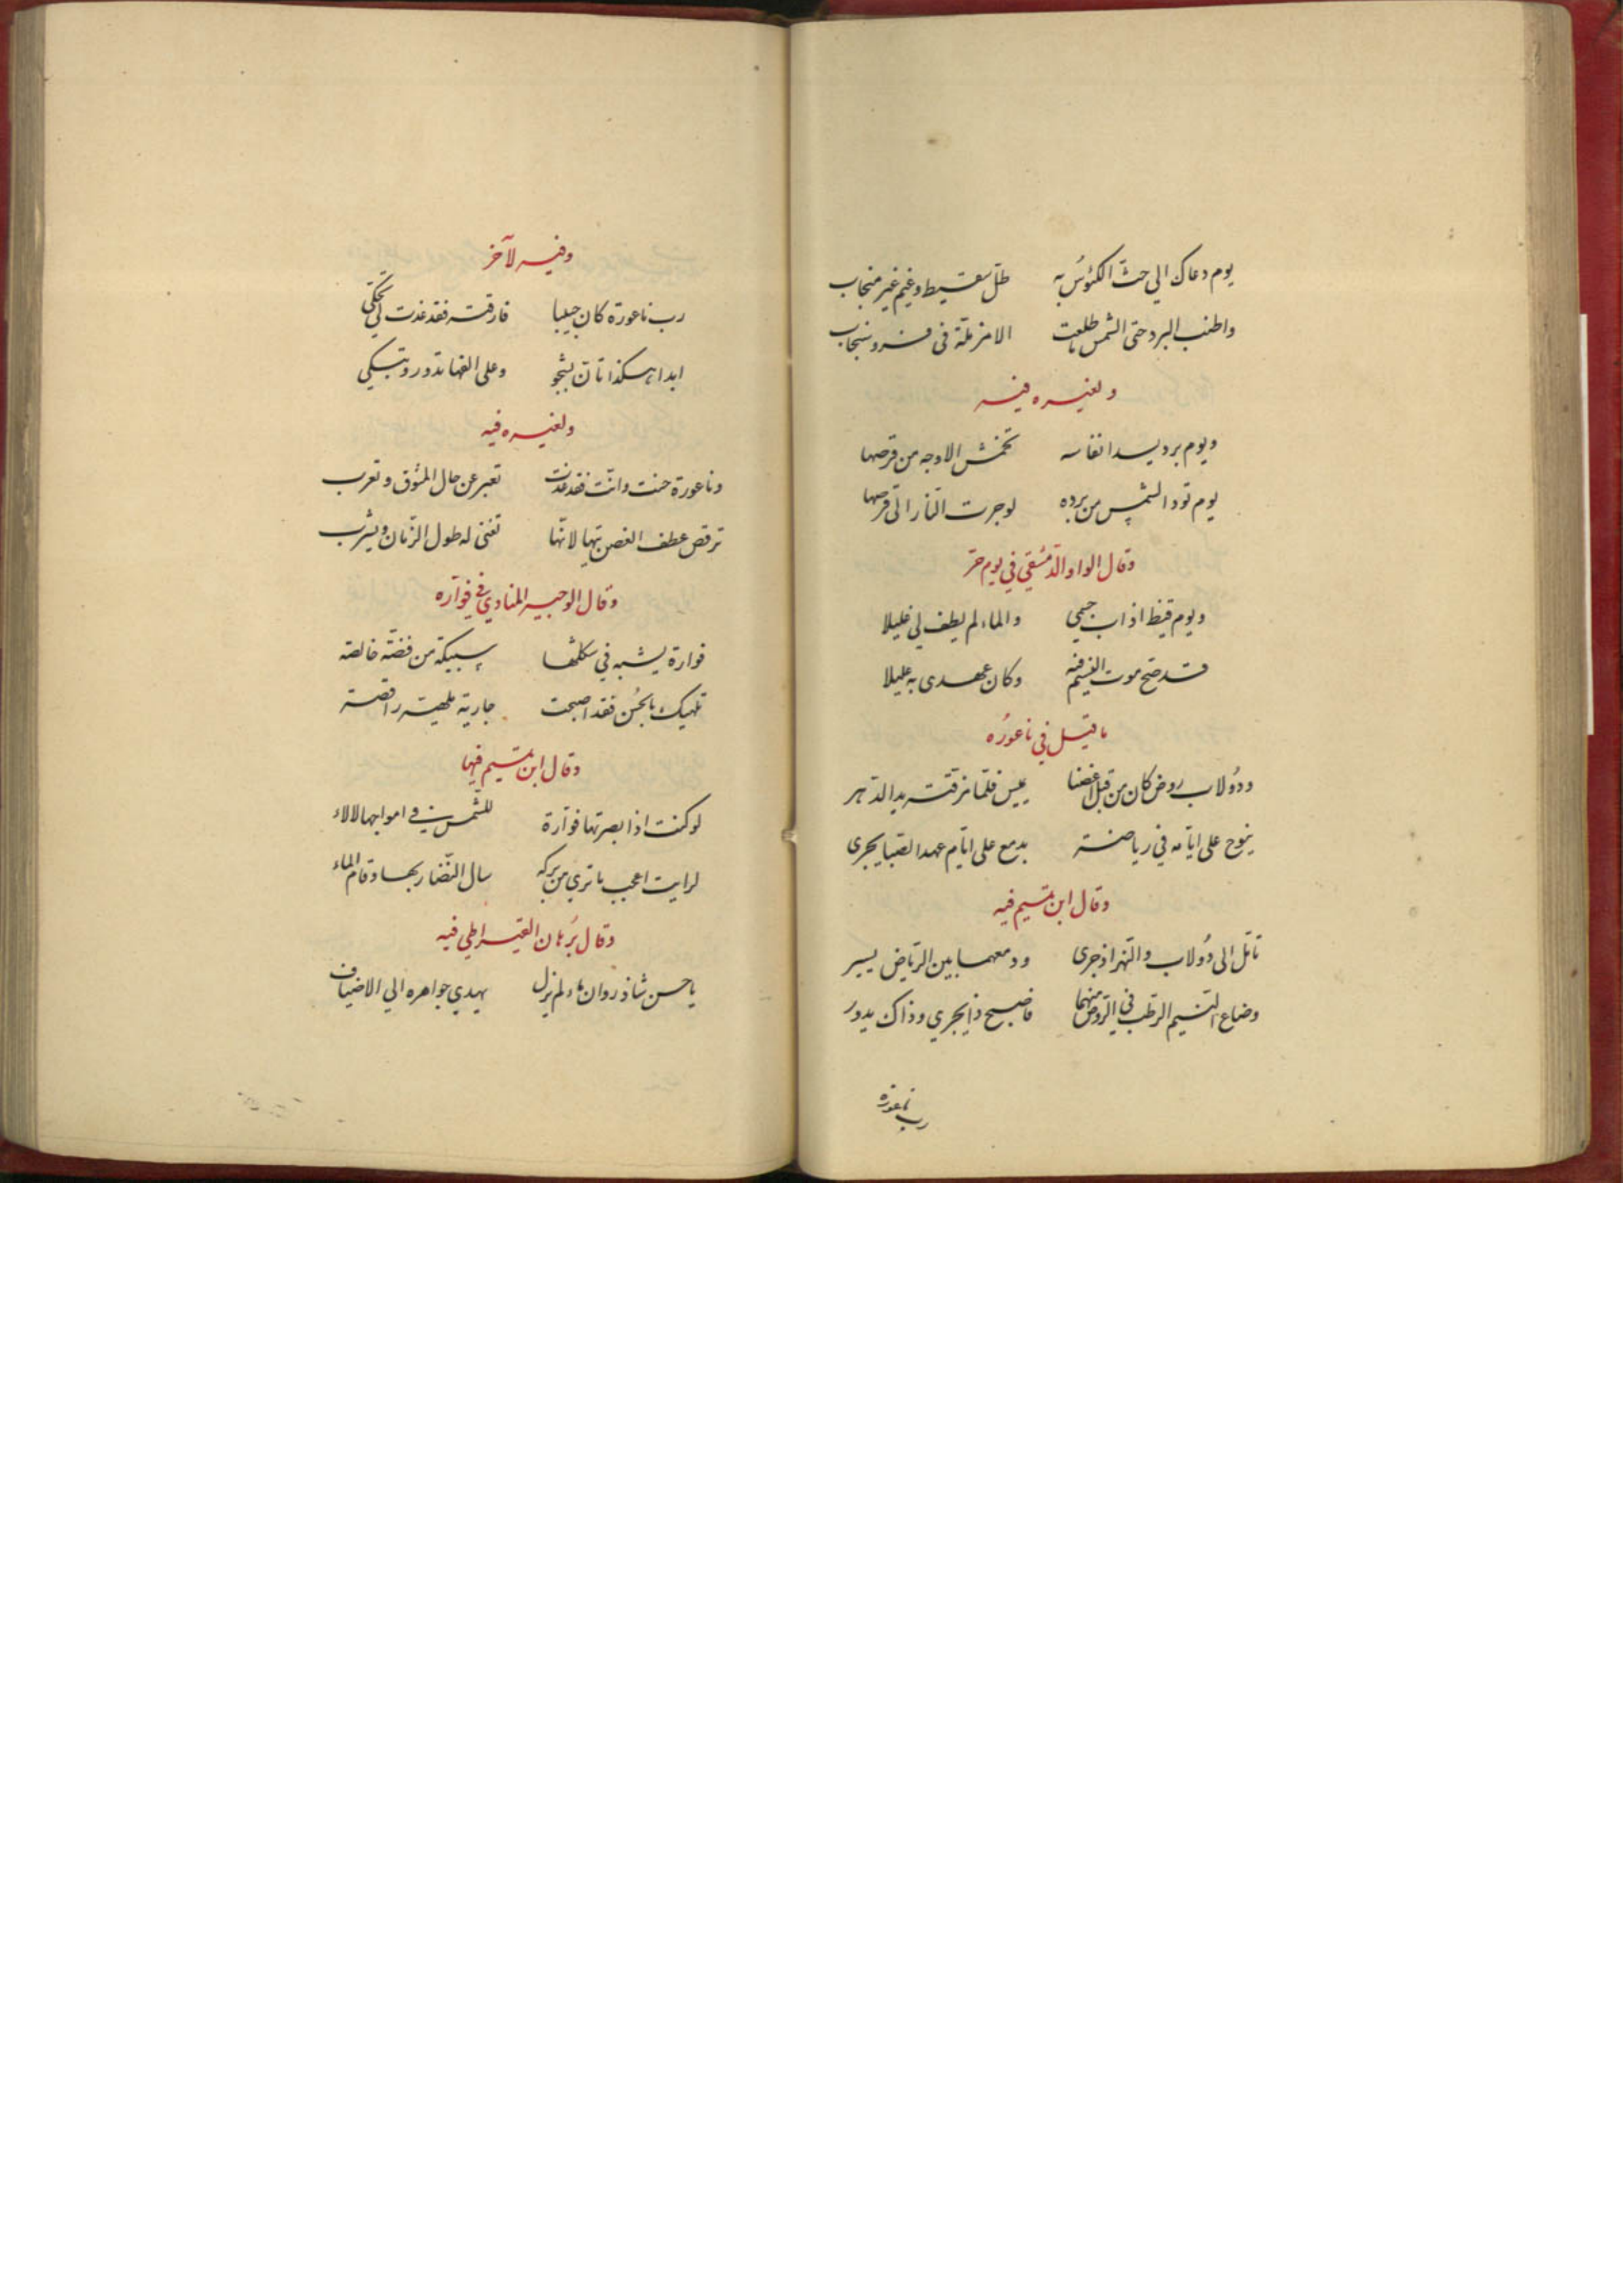 يوم دعاك الي حث الكئوس به طل سقيط وغيم غير منجاب
واطنب البرد حتى الشمس ما طلعت الا مزملة في فرو سنجاب
ولغيره فيه
ويوم برد يدا انفاسه تخمش الاوجه من قرصها
يوم تود الشمس من برده لو جرت النار الى قرصها
وقال الواوا الدمشقي في يوم حر
ويوم قيظ اذاب جسمي والماء لم يطف لي غليلا
قد صح موت النسيم فيه وكان عهدى به عليلا
ما قيل في ناعوره
ودولاب روض كان من قبل اغصنا يميس فلما مزقته يد الدهر
ينوح على ايامه في رياضه بدمع على ايام عهد الصبا يجرى
وقال ابن تميم فيه
تامل الى دولاب والنهر اذ جرى ودمعهما بين الرياض يسير
وضاع النسيم الرطب في الروض منهما فاصبح ذا يجري وذاك يدور
رب ناعورة
وفيه لآخر
رب ناعورة كان حبيبا فارقته فقد غدت لي تحكي
ابدا هكذا تان بشجو وعلى الفها تدور وتبكي
ولغيره فيه
وناعورة حنت وانت فقد غدت تعبر عن حال المشوق وتعرب
ترقص عطف الغصن تيها لانها تغنى له طول الزمان ويشرب
وقال الوجيه المناوي في فوآره
فوارة يشبه في شكلها سبيكة من فضة خالصه
تلهيك بالحسن فقد اصبحت جارية ملهيه راقصه
وقال ابن تميم فيها
لو كنت اذ ابصرتها فوآرة للشمس في امواجها لالاء
لرايت اعجب ما تري من بركه سال النضار بها وقام الماء
وقال برهان القيراطي فيه
يا حسن شاذروان ماء لم يزل يهدي جواهره الي الاضياف